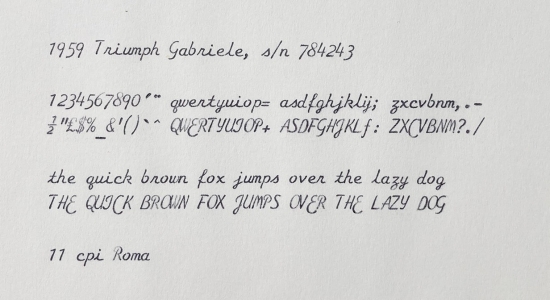 1959 Triumph Gabriele, s/n 784243
1234567890´¨ qwertyuiop= asdfghjklij; zxcvbnm,.-
½"£$%_&'()`^ QWERTYUIOP+ ASDFGHJKLƒ: ZXCVBNM?./
the quick brown fox jumps over the lazy dog
THE QUICK BROWN FOX JUMPS OVER THE LAZY DOG
11 cpi Roma